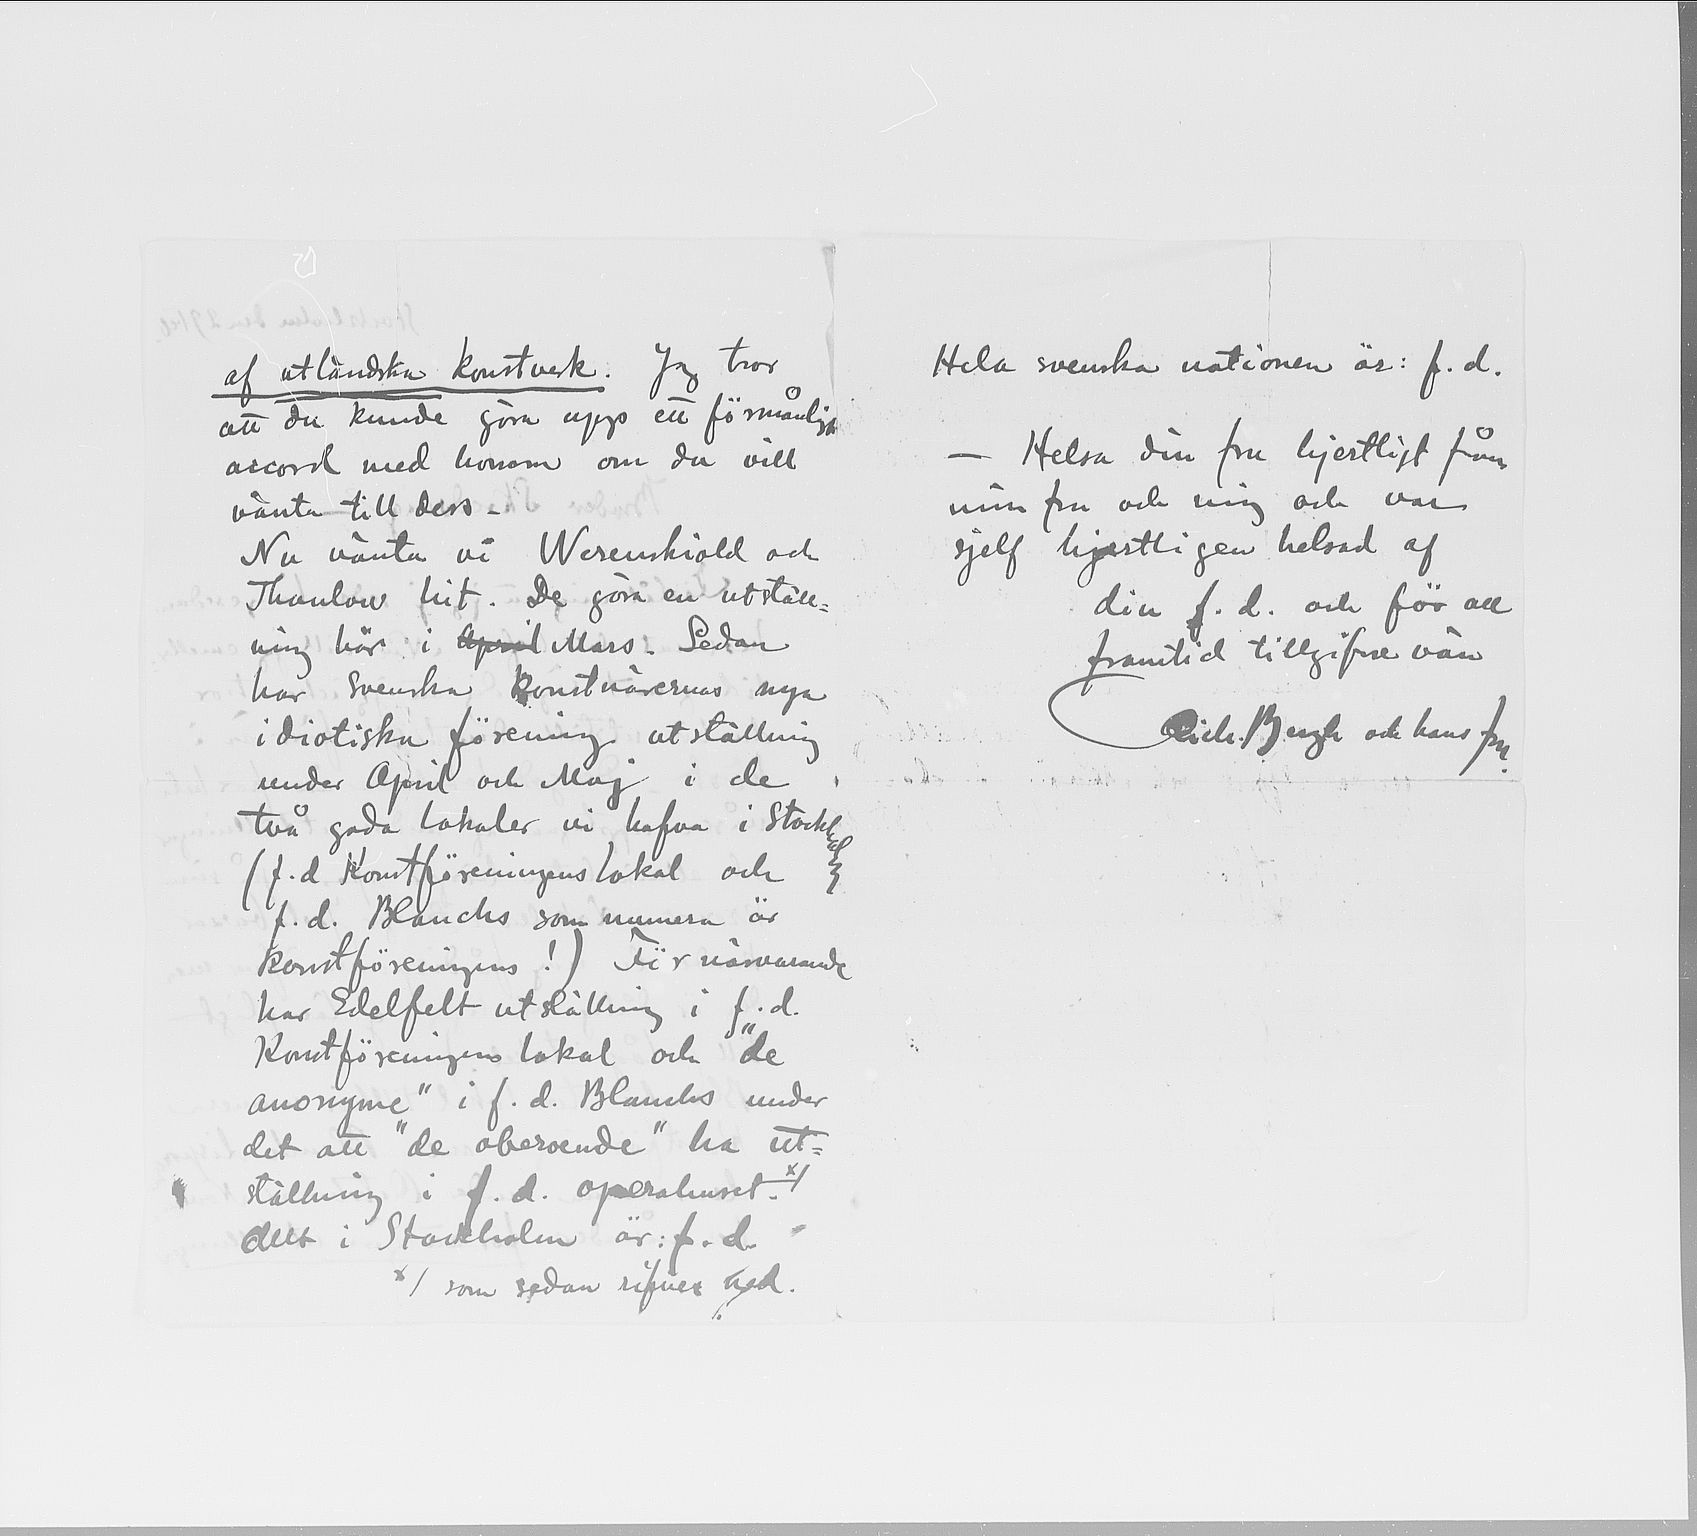 af utländska konstverk. Jag tror
att du kunde göra upp ett förmånligt
accord med honom om du vill
vänta till dess.
Nu vänta vi Werenskiold och
Thaulow hit. De göra en utställ=
ning här i April Mars. Sedan
har Svenska konstnärernas nya
idiotiska förening utställning
under April och Maj i de
två goda lokaler vi hafva i Stockholm
(f.d Konstföreningens lokal och
f.d. Blanchs som numera är
konstföreningens!) För närvarande
har Edelfelt utställning i f.d.
Konstföreningens lokal och "de
anonyme" i f.d. Blanchs under
det att "de oberoende" ha ut=
ställning i f.d. operahuset. x/
Allt i Stockholm är: f.d.
x/ som sedan rifves ned.
Hela svenska nationen är: f.d.
— Helsa din fru hjertligt från
min fru och mig och var
sjelf hjertligen helsad af
din f.d. och för all
framtid tillgifne vän
Rich. Bergh och hans fru.